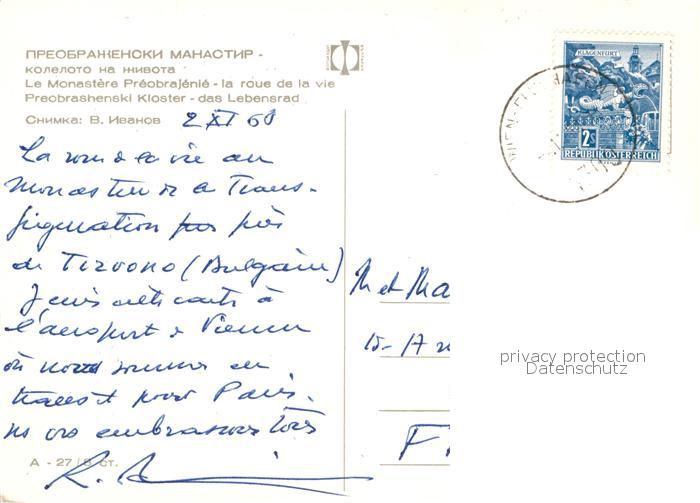 ПРЕОБРАЖЕНСКИ МАНАСТИР -
КОЛЕЛОТО НА ЖИВОТА
Le Monastère Préobrajénié - la roue de la vie
Preobrashenski Kloster - das Lebensrad
Снимка: В. Иванов
2 XI 68
La roue de la vie au
Monastère de la Trans-
figuration près
de Tirnovo (Bulgarie)
Je écris cette carte à
l'aéroport de Vienne
où nous sommes en
transit pour Paris.
ns vs embrassons tous
M et Ma
15-17
F
А - 27 / Б ст.
KLAGENFURT
2S
REPUBLIK ÖSTERREICH
WIEN-FLUGHAFEN
privacy protection
Datenschutz